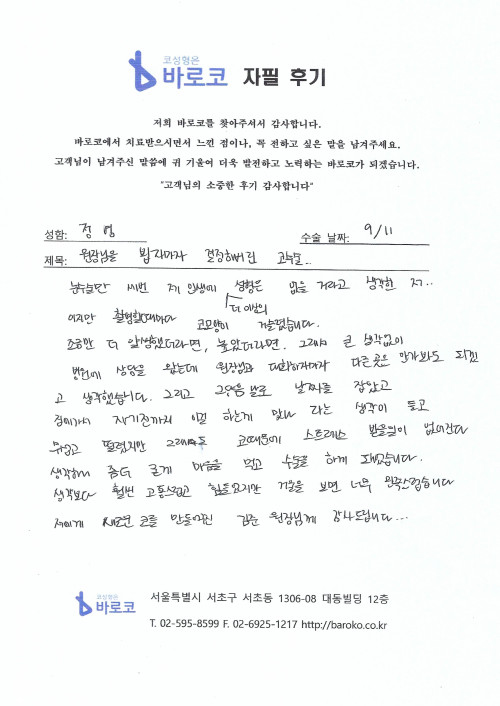 코성형은
바로코 자필 후기
저희 바로코를 찾아주셔서 감사합니다.
바로코에서 치료받으시면서 느낀 점이나, 꼭 전하고 싶은 말을 남겨주세요.
고객님이 남겨주신 말씀에 귀 기울여 더욱 발전하고 노력하는 바로코가 되겠습니다.
"고객님의 소중한 후기 감사합니다"
성함: 정 영
수술 날짜: 9/11
제목: 원장님을 뵙자마자 결정해버린 코수술..
눈수술만 세번 제 인생에 성형은 없을 거라고 생각한 저..
더 이상의
하지만 촬영할때마다 코모양이 거슬렸습니다.
조금만 더 날씬했더라면, 높았더라면. 그래서 큰 생각없이
병원에 상담을 왔는데 원장님과 대화하자마자 다른 곳은 안가봐도 되겠
고 생각했습니다. 그리고 그 다음 날로 날짜를 잡았고
자기전까지 이걸 하는게 맞나 라는 생각이 들고
무섭고 떨렸지만 그래도 코때문에 스트레스 받을일이 없어진다
생각하니 좀더 굳게 마음을 먹고 수술을 하게 되었습니다.
생각보다 훨씬 고통스럽고 힘들었지만 거울을 보면 너무 만족스럽습니다
저에게 새로운 코를 만들어주신 김준 원장님께 감사드립니다...
코성형은
바로코
서울특별시 서초구 서초동 1306-08 대동빌딩 12층
T. 02-595-8599 F. 02-6925-1217 http://baroko.co.kr